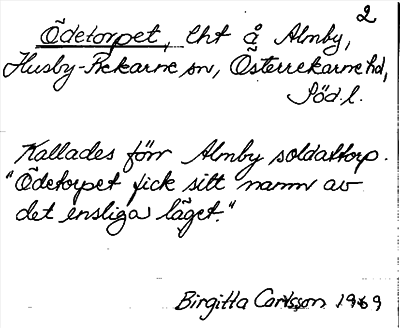 2
Ödetorpet, lht å Almby,
Husby-Rekarne sn, Österrekarne hd,
Söd.l.
Kallades förr Almby soldattorp.
"Ödetorpet fick sitt namn av
det ensliga läget."
Birgitta Carlsson 1969